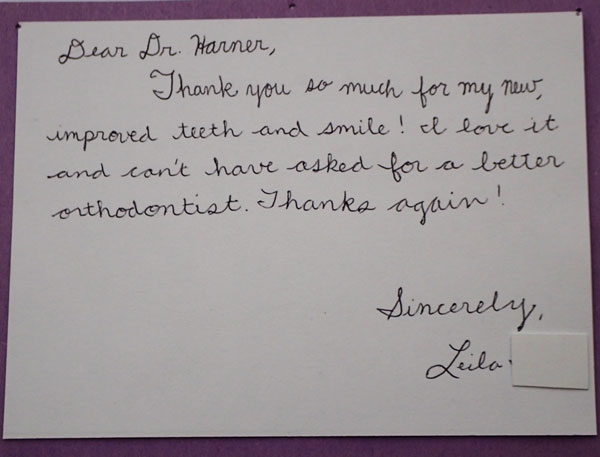 Dear Dr. Harner,
Thank you so much for my new,
improved teeth and smile! I love it
and can't have asked for a better
orthodontist. Thanks again!
Sincerely,
Leila